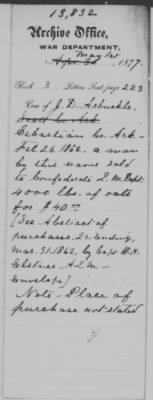 13,832
Archive Office,
WAR DEPARTMENT,
May 1st
Apr 30 1877.
Book 3 Letters Sent, page 223
Case of J. D. Arbuckle,
Scott Co Ark
Sebastian Co. Ark-
Feb 26, 1862, a man
by this name sold
to Confederate Q.M. Dept.
4000 lbs. of oats
for $40.00
[See Abstract of
purchases, Qr. ending,
Mar. 31. 1862, by Capt. W.H.
A.Q.M-
Envelope]
Note- Place of
purchase not stated